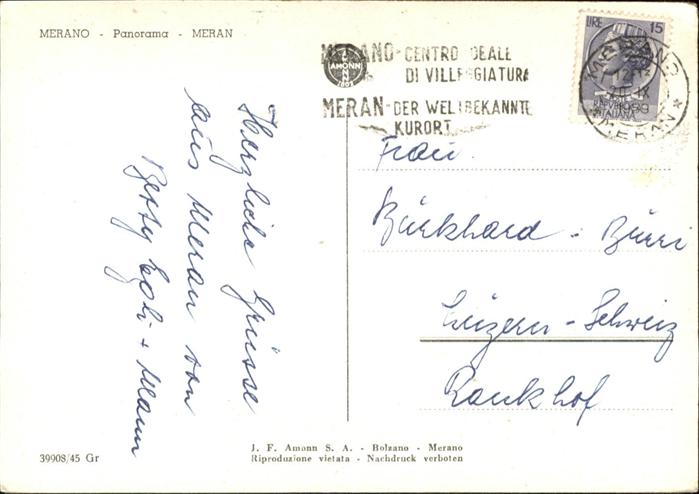 MERANO - Panorama - MERAN
MERANO - CENTRO IDEALE
DI VILLEGGIATURA
MERAN - DER WELTBEKANNTE
KURORT
AMONN
LIRE 15
REPVBBLICA
ITALIANA
MERANO
12
IX
1959
* MERAN *
Herzliche Grüsse
aus Meran von
Betty Egli + Mann
Frau
Burkhard - Bürri
Luzern - Schweiz
Rankhof
J. F. Amonn S. A. - Bolzano - Merano
Riproduzione vietata - Nachdruck verboten
39908/45 Gr